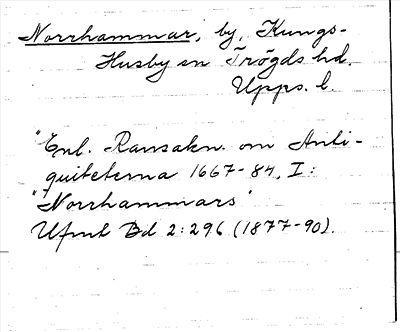 Norrhammar, by, Kungs-
Husby sn Trögds hd.
Upps. l.
"Enl. Ransakn. om Anti-
quiteterna 1667-84, I:
"Norrhammars"
Ufmt Bd 2:296 (1877-90).